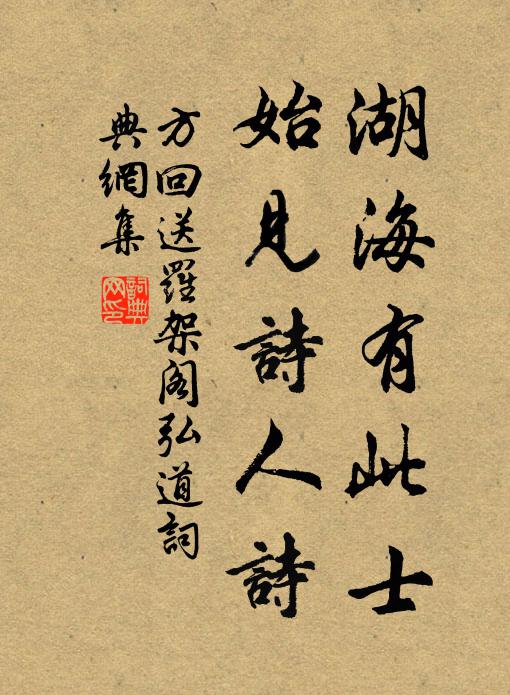 湖海有此士
始見詩人詩
方回送羅架閣弘道詞
典網集
詞典
网印